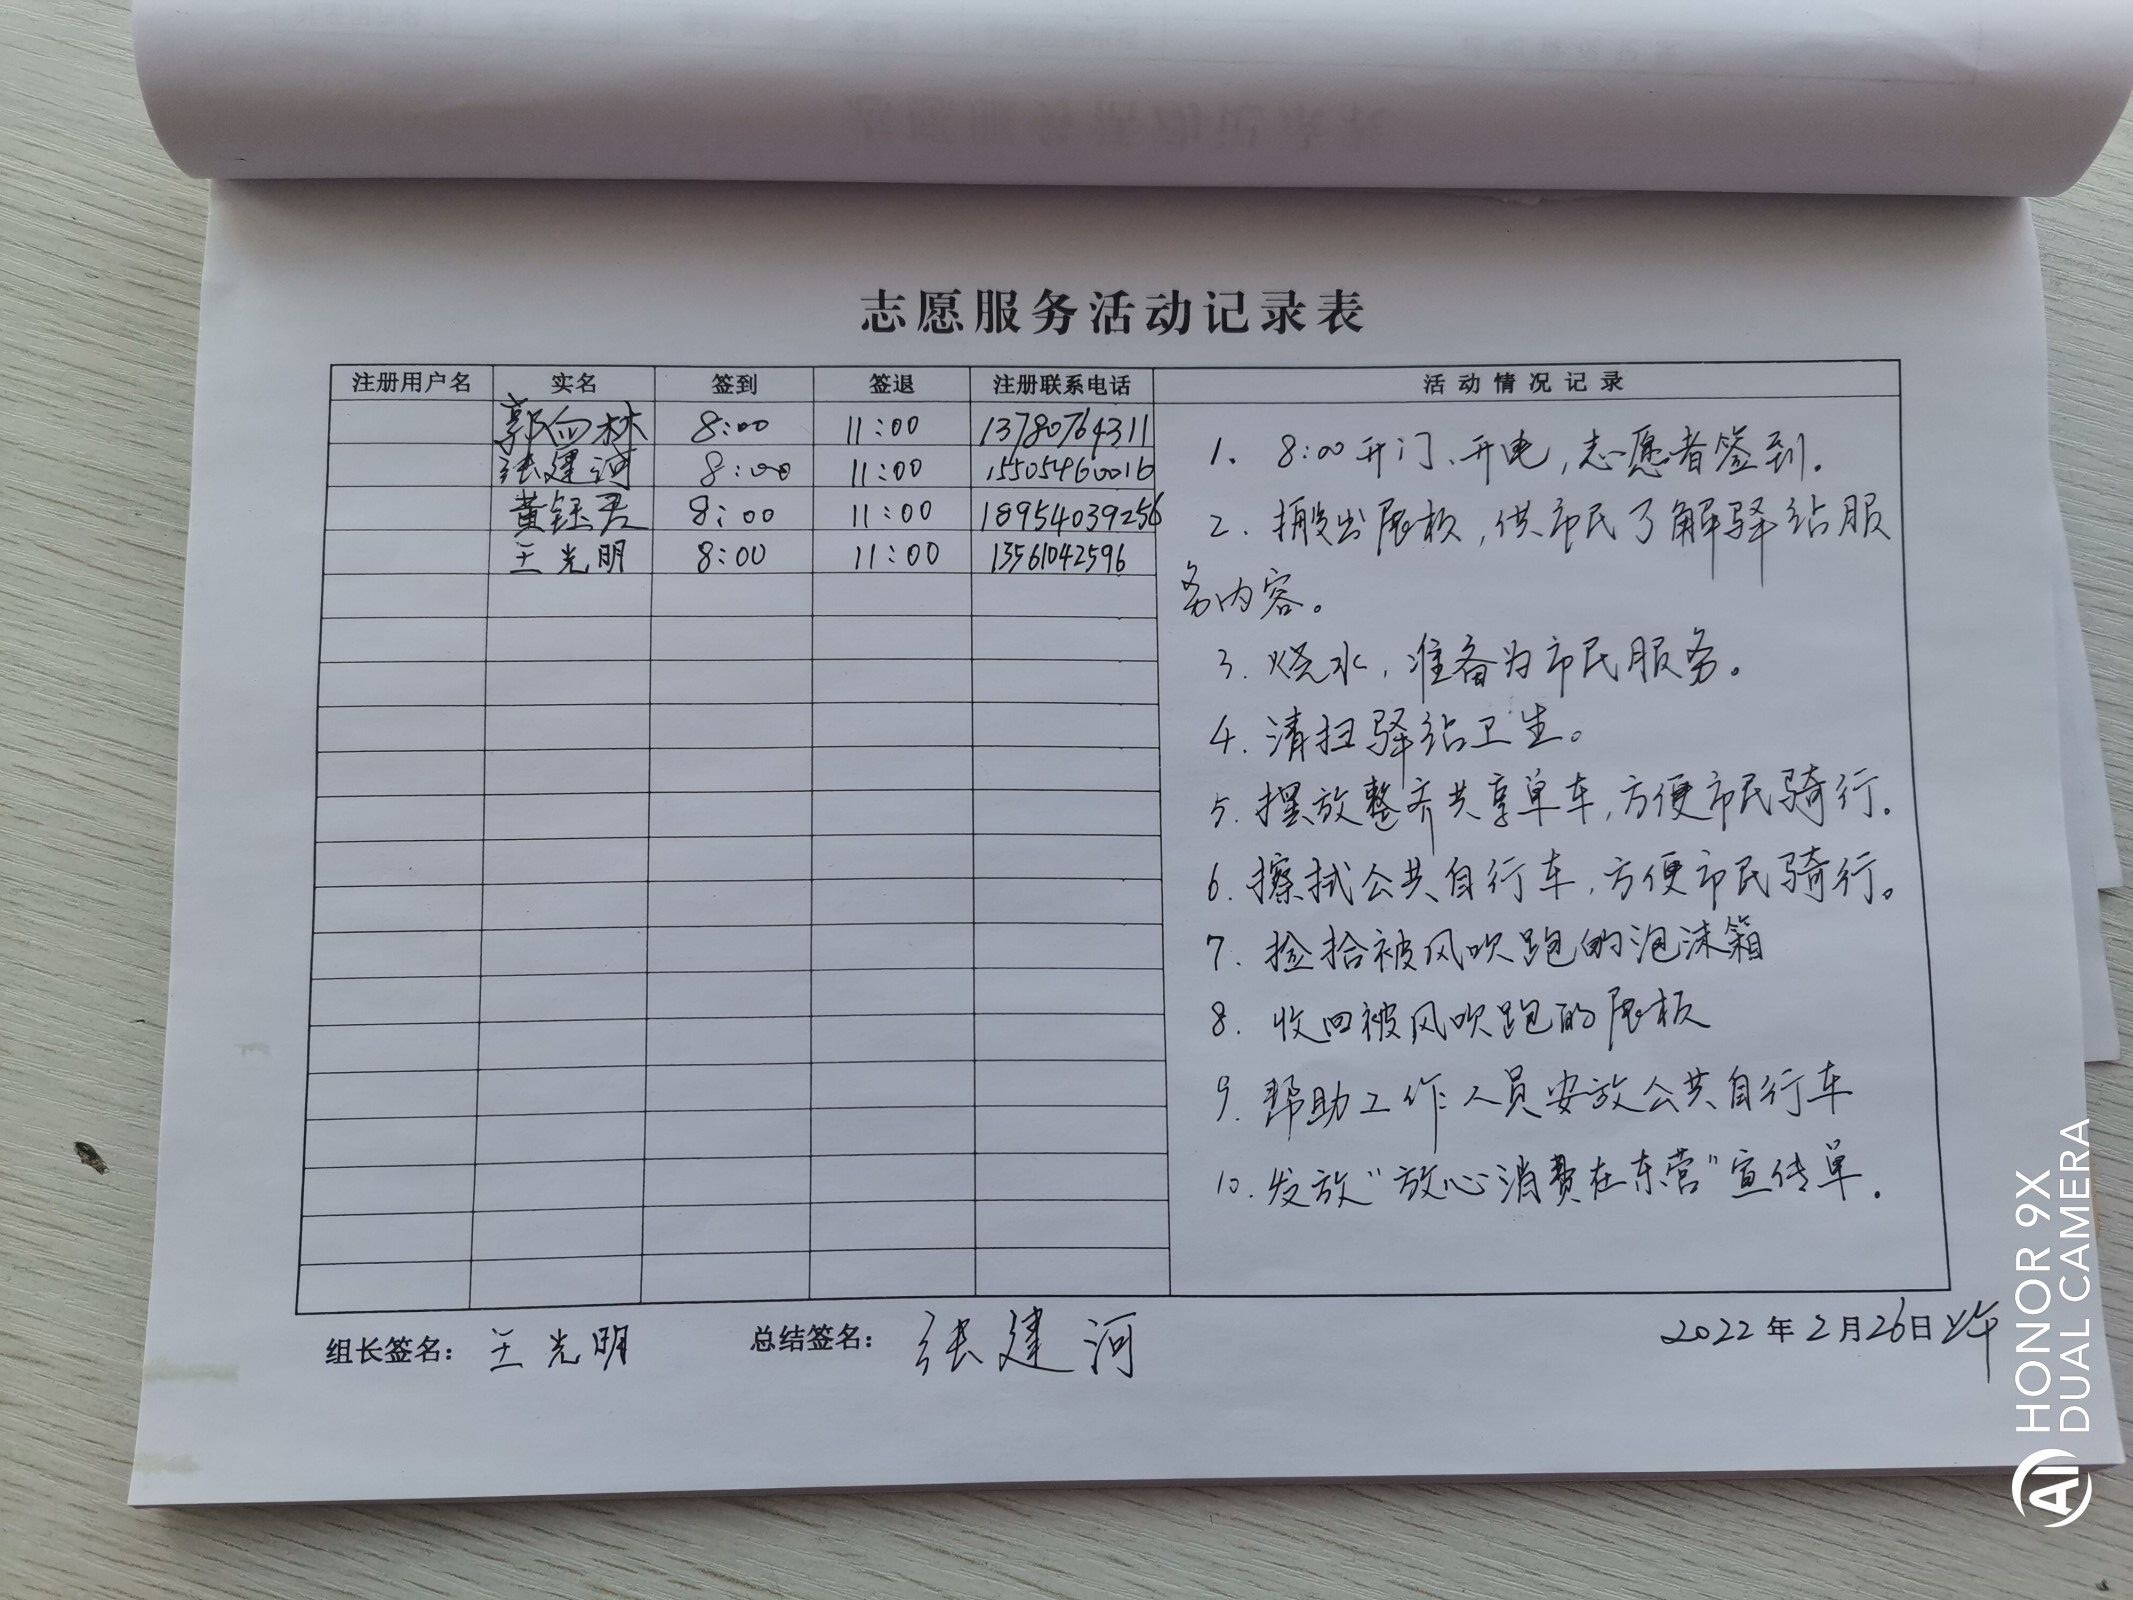 志愿服务活动记录表
注册用户名 实名 签到 签退 注册联系电话 活动情况记录
郭向林 8:00 11:00 13780764311
张建河 8:00 11:00 15505460016
黄钰君 8:00 11:00 18954039256
王光明 8:00 11:00 13561042596
1、8:00开门、开电,志愿者签到.
2、搬出展板,供市民了解驿站服
务内容。
3.烧水,准备为市民服务。
4.清扫驿站卫生。
5.摆放整齐共享单车,方便市民骑行.
6.擦拭公共自行车,方便市民骑行。
7.捡拾被风吹跑的泡沫箱
8.收回被风吹跑的展板
9.帮助工作人员安放公共自行车
10.发放"放心消费在东营"宣传单.
组长签名: 王光明 总结签名: 张建河 2022年2月26日上午
HONOR 9X
DUAL CAMERA
AI